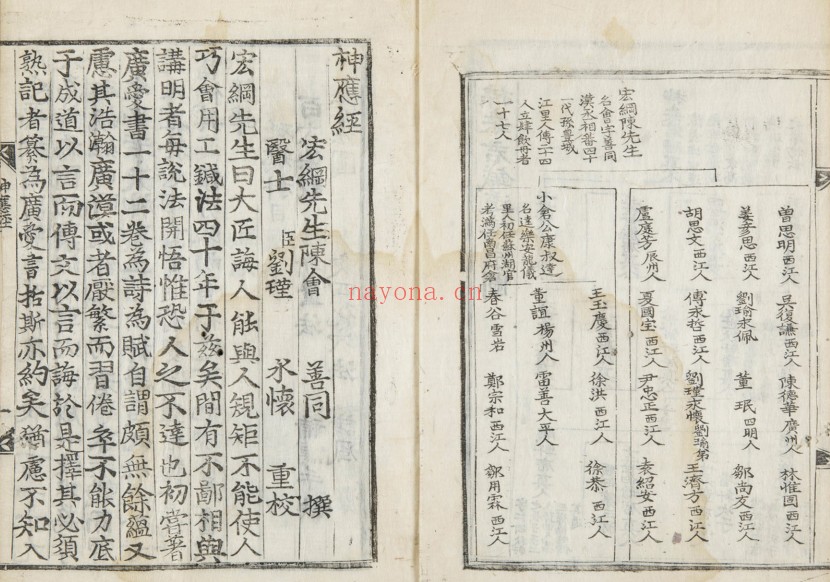 曾思明西江人 吳復讌西江人 陳德華廣州人 林惟國西江人
姜彥思西江人 劉瑜永佩 董珉四明人 鄒尚友西江人
胡思文西江人 傅永哲西江人 劉瑾永懷劉瑜弟 王濟方西江人
盧庭芳辰州人 夏國宝西江人 尹忠正西江人 袁紹安西江人
王玉慶西江人 徐洪西江人 徐恭西江人
宏綱陳先生
名會字善同
漢丞相番四十
一代孫豊城
江里人傳二十四
人立飲丹者
一十七人
小倉公康叔達
名達樂安龍儀
里人初任蘇州湖官
考滿任昌府倉
董誼楊州人 雷善大平人
春谷雪岩 鄭宗和西江人 鄒用霖西江人
神應經
宏綱先生陳會 善同 撰
醫士 臣劉瑾 永懷 重校
宏綱先生曰大匠誨人能與人規矩不能使人
巧會用工鍼法四十年于兹矣間有不鄙相與
講明者每說法開悟惟恐人之不達也初嘗著
廣愛書一十二卷為詩為賦自謂頗無餘蘊又
慮其浩瀚廣漠或者厭繁而習倦卒不能力底
于成道以言而傳文以言而誨於是擇其必須
熟記者纂為廣愛書括斯亦約矣猶慮不知入
神應經
一
nayona.cn